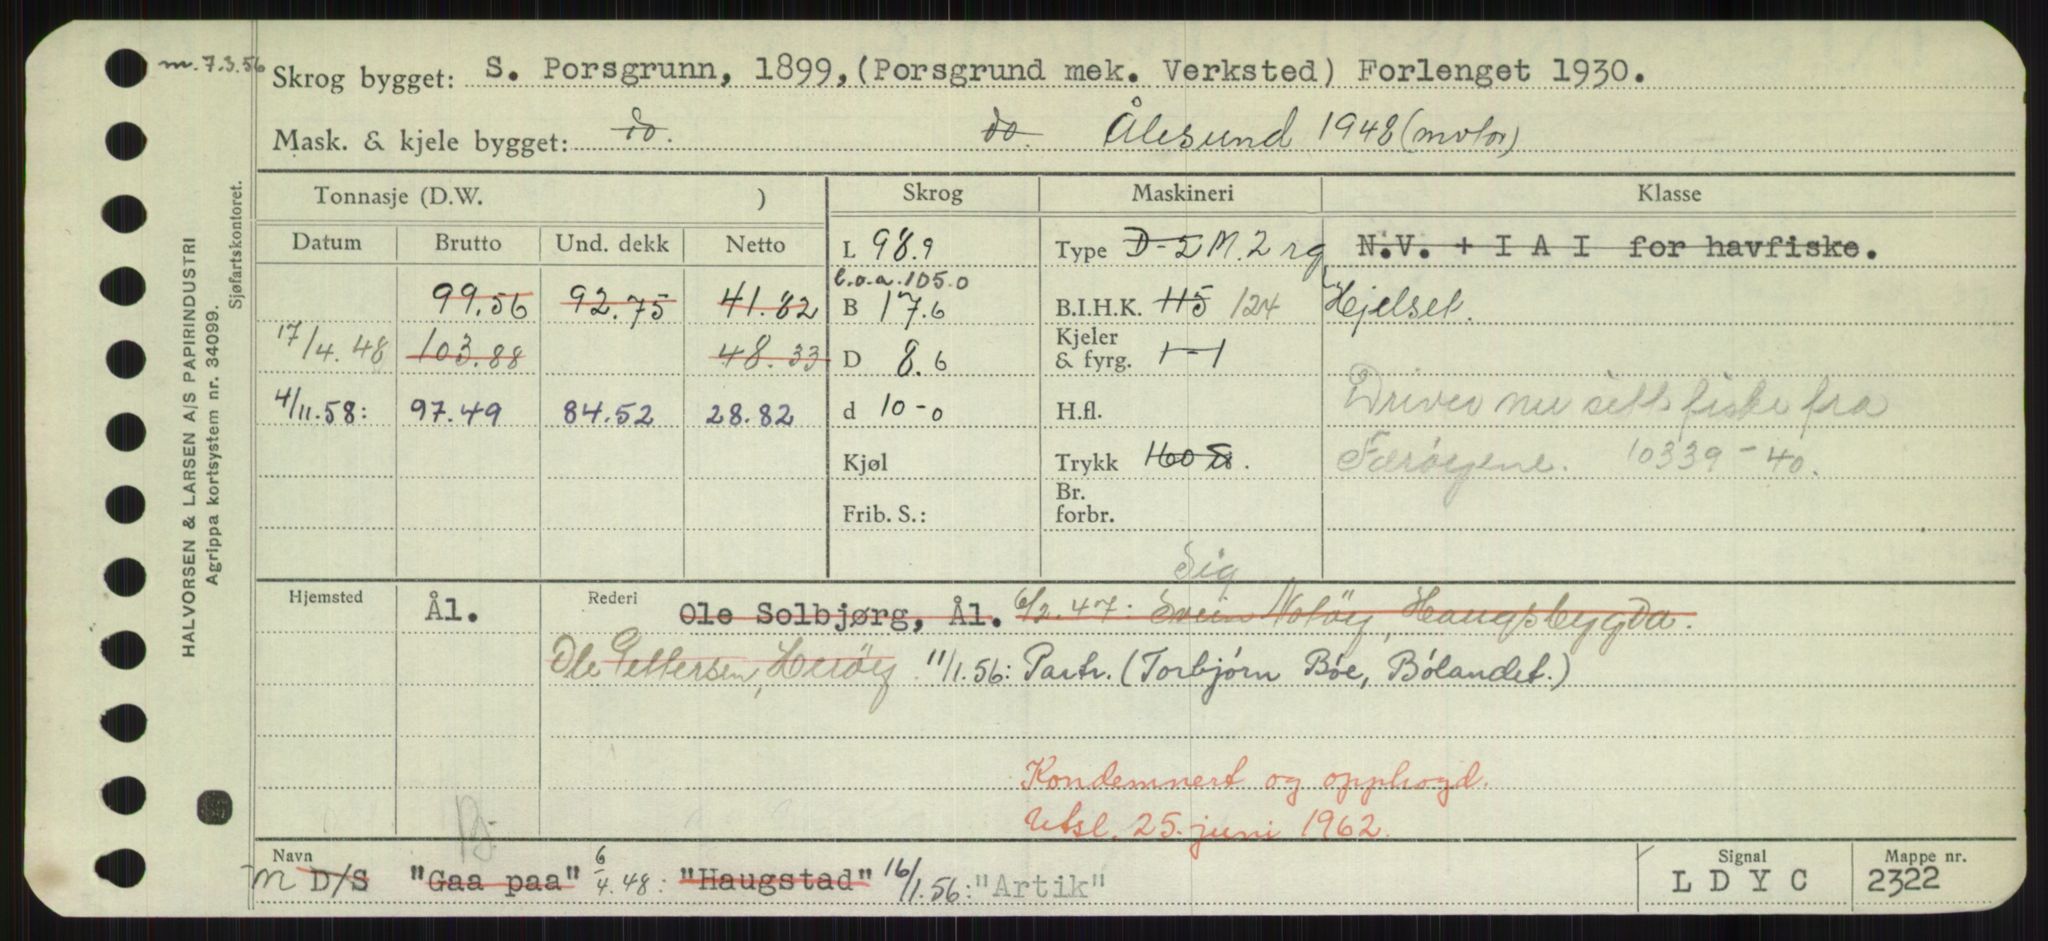 m. 7.3.56
Skrog bygget: S. Porsgrunn, 1899, (Porsgrund mek. Verksted) Forlenget 1930.
Mask. & kjele bygget: do. do. Ålesund 1948 (motor)
Tonnasje (D.W. ) Skrog Maskineri Klasse
Datum Brutto Und. dekk Netto L 98.9 Type D-2 M.2 rg N.V. + I A I for havfiske.
l.o.a. 105.0
99.56 92.75 41.82 B 17.6 B.I.H.K. 115 124 Hjelset.
17/4.48 103.88 48.33 D 8.6 Kjeler & fyrg. 1-1
4/11.58: 97.49 84.52 28.82 d 10-0 H.fl. Driver nu sitt fiske fra
Kjøl Trykk 160 Færøyene. 10339-40.
Frib. S.: Br. forbr.
Sig
Hjemsted Ål. Rederi Ole Solbjørg, Ål. 6/2.47: Svein Notøy, Haugsbygda.
Ole Pettersen, Herøy 11/1.56: Partr. (Torbjørn Bøe, Bølandet.)
Kondemnert og opphogd.
Utsl. 25. juni 1962.
Navn Signal Mappe nr.
M D/S "Gaa paa" 6/4.48: "Haugstad" 16/1.56: "Artik" L D Y C 2322
HALVORSEN & LARSEN A/S PAPIRINDUSTRI
Agrippa kortsystem nr. 34099.
Sjøfartskontoret.